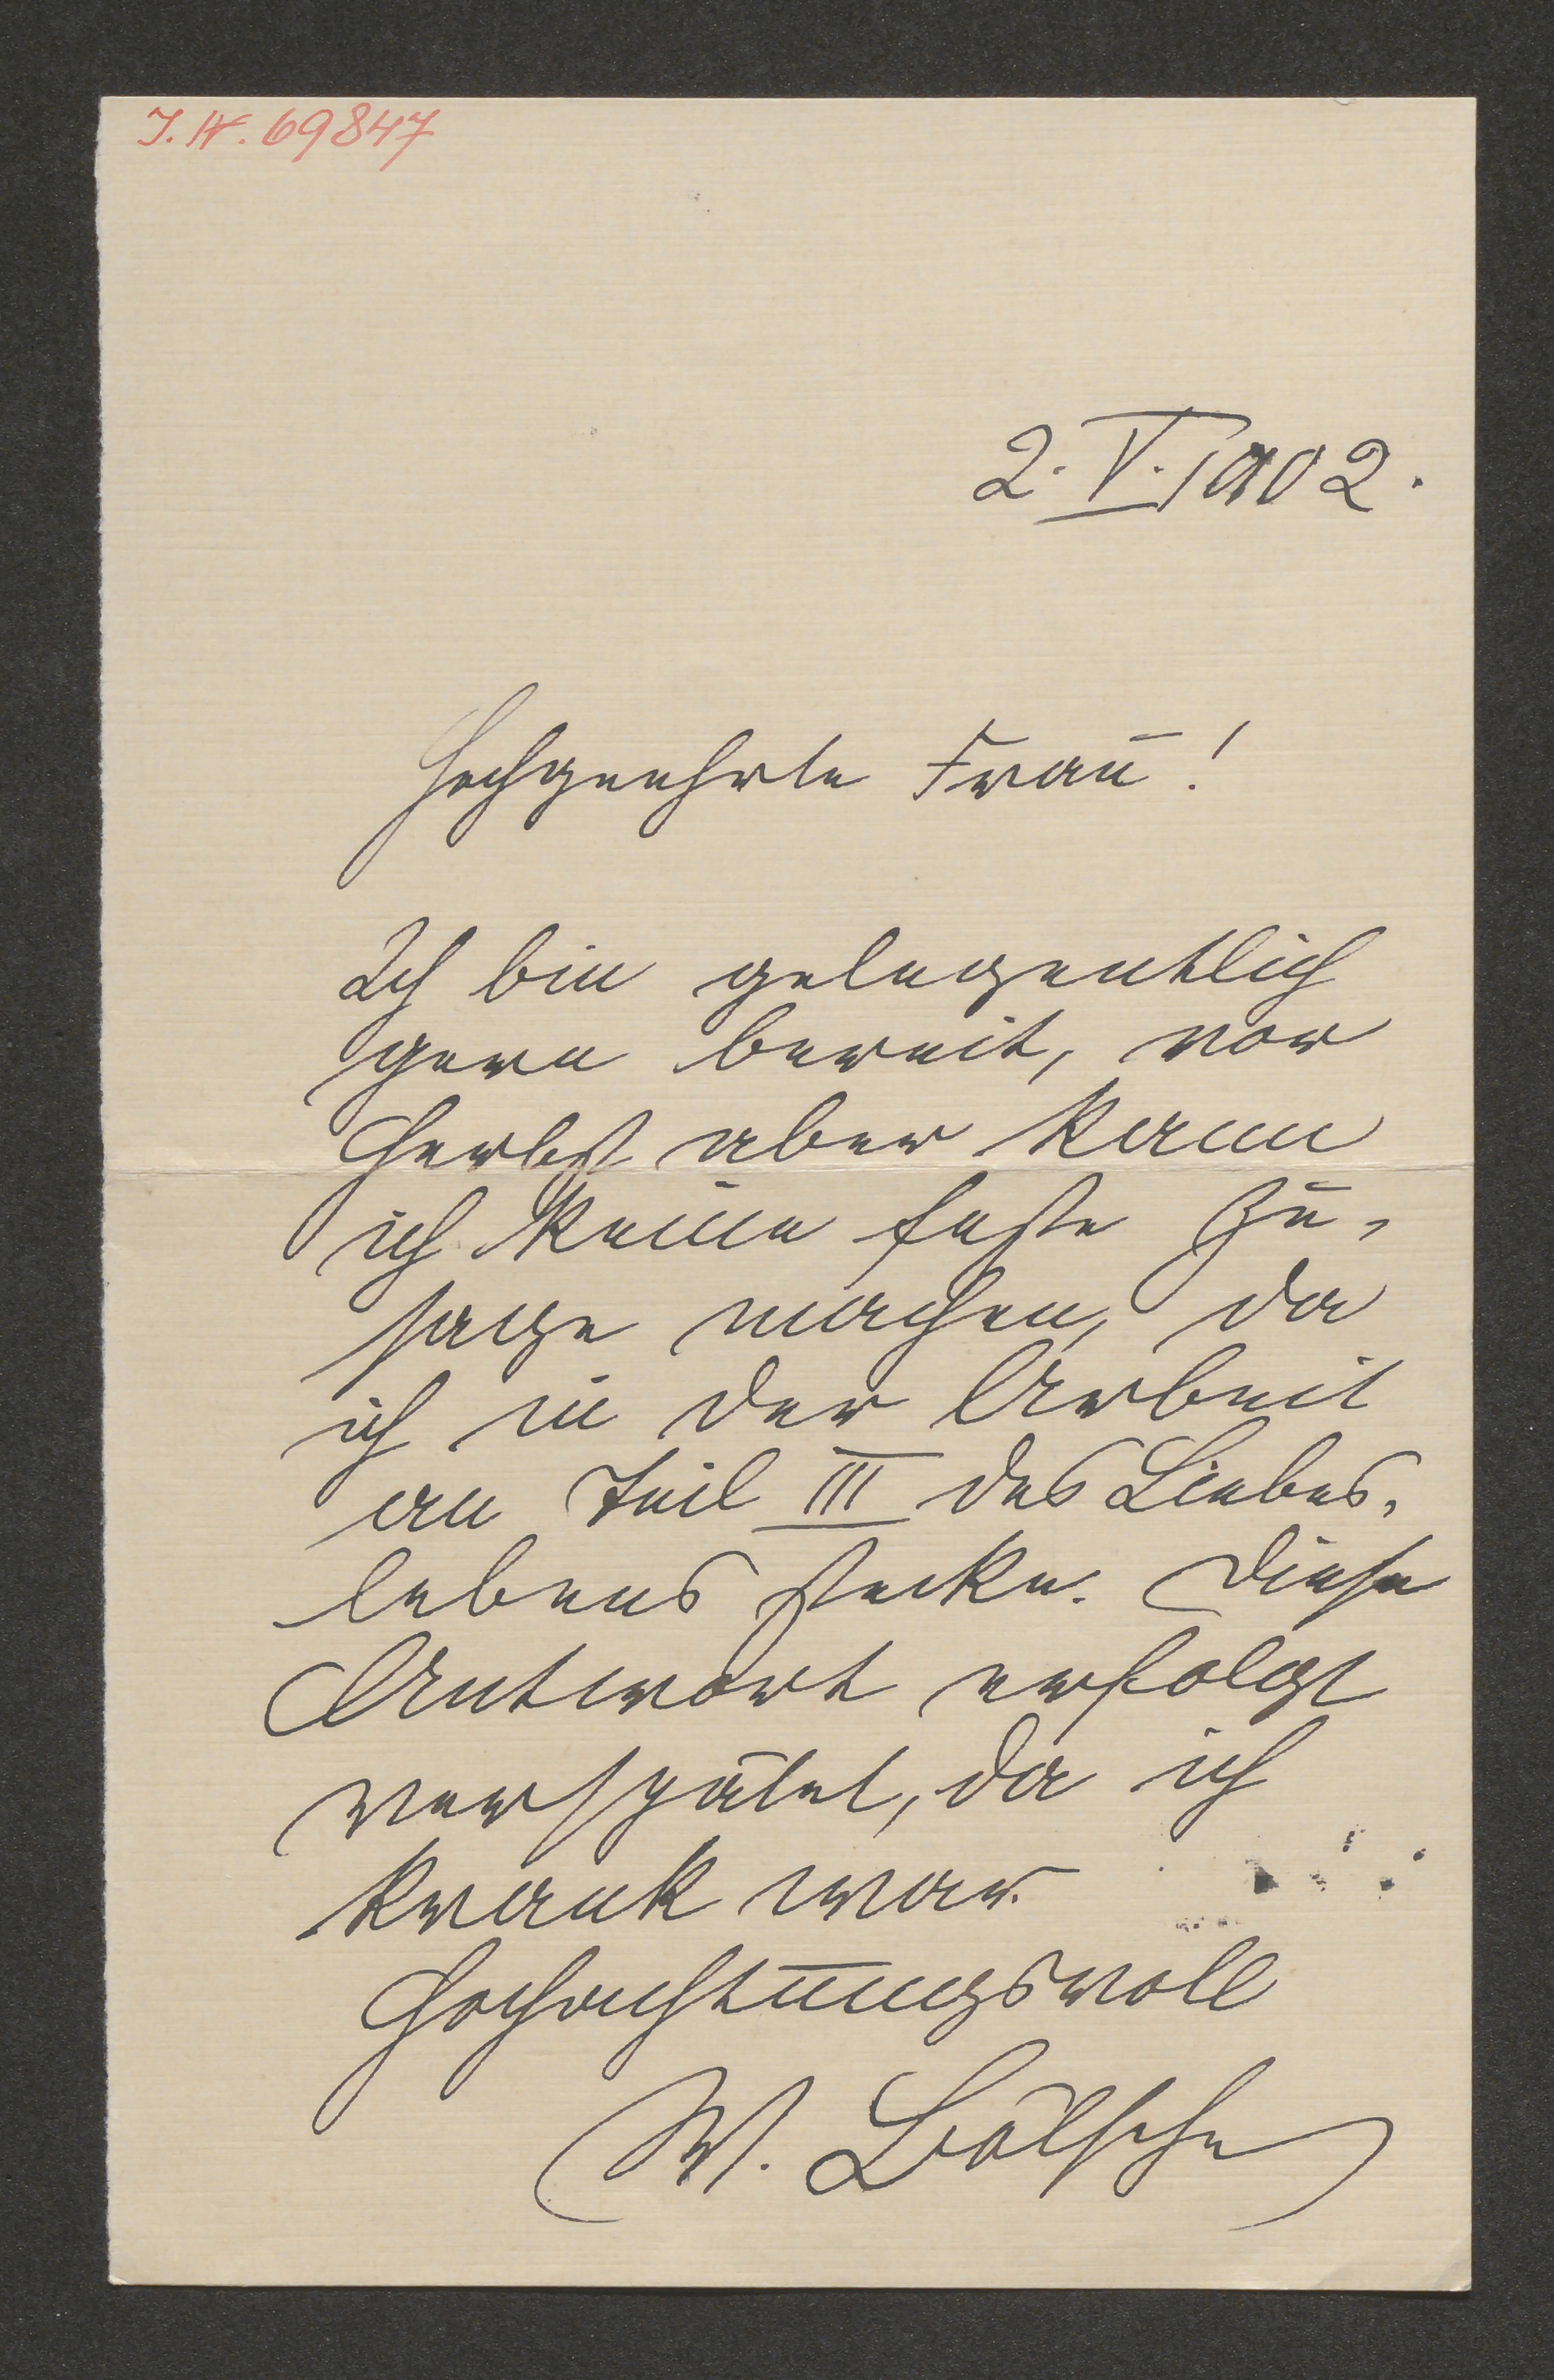 J. N. 69847
2. V. 1902.
Hochgeehrte Frau!
Ich bin gelegentlich
gern bereit, vor
Herbst aber kann
ich keine feste Zu-
sage machen, da
ich in der Arbeit
an Teil III des Liebes-
lebens stecke. Diese
Antwort erfolgt
verspätet, da ich
krank war.
Hochachtungsvoll
W. Bölsche